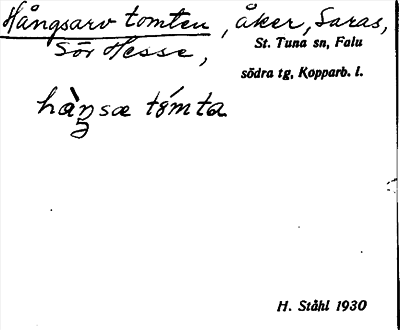 Hångsarv tomten, åker, Saras,
Sör Hesse,
St. Tuna sn, Falu
södra tg, Kopparb. l.
hàŋsæ tómta
H. Ståhl 1930